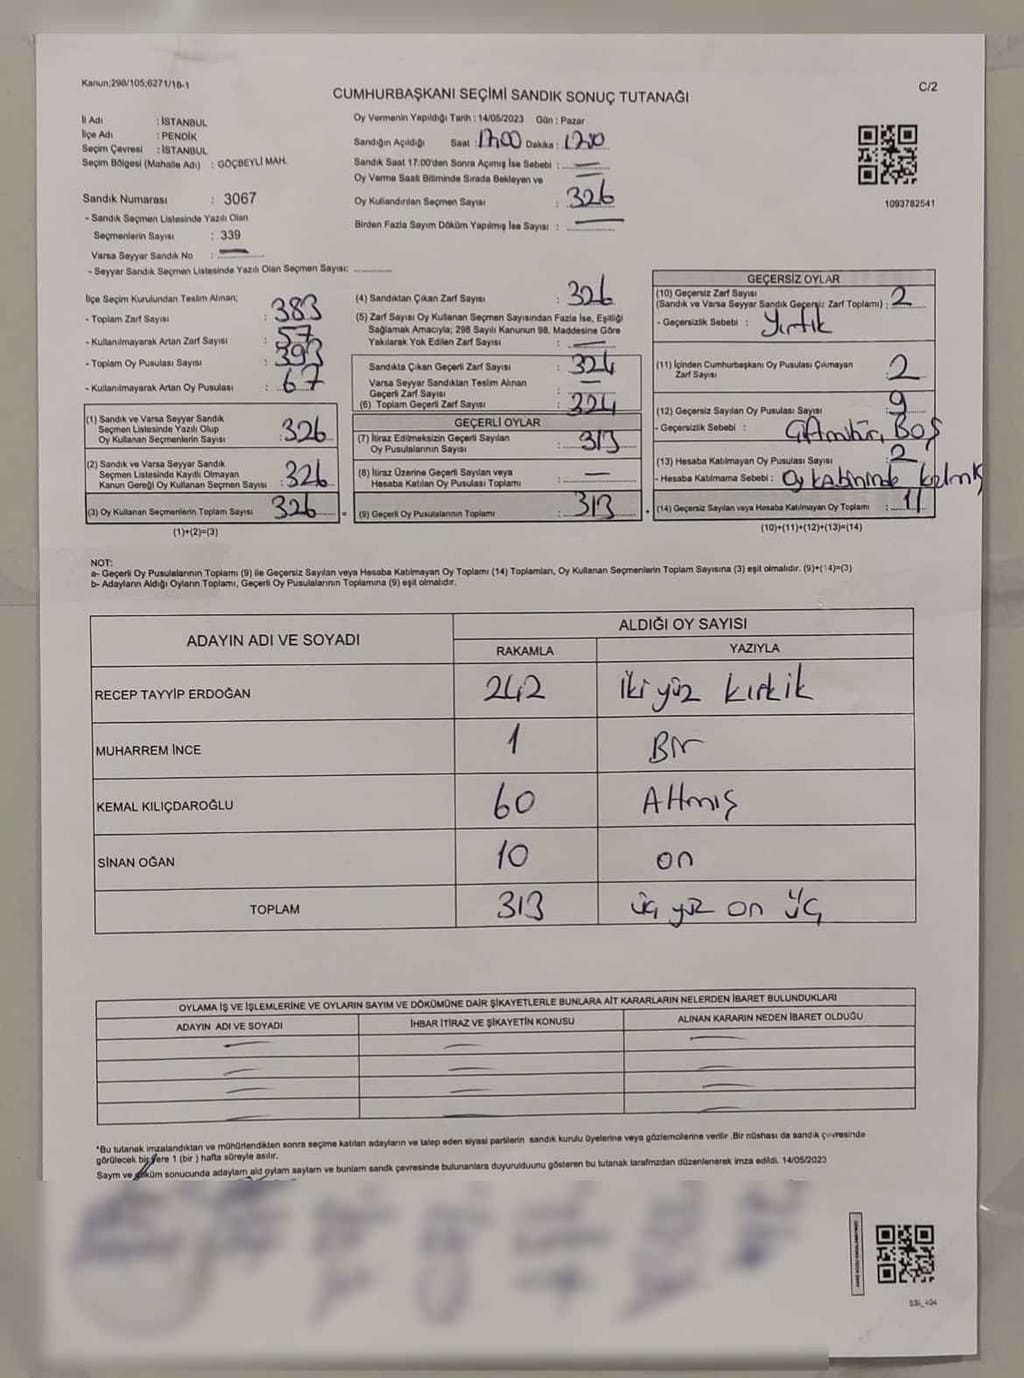 Kanun:298/105;6271/18-1
C/2
CUMHURBAŞKANI SEÇİMİ SANDIK SONUÇ TUTANAĞI
İl Adı : İSTANBUL
İlçe Adı : PENDİK
Seçim Çevresi : İSTANBUL
Seçim Bölgesi (Mahalle Adı) : GÖÇBEYLİ MAH.
Oy Vermenin Yapıldığı Tarih : 14/05/2023 Gün : Pazar
Sandığın Açıldığı Saat : 17:00 Dakika :
Sandık Saat 17:00'den Sonra Açımış İse Sebebi : —
Oy Verme Saati Bitiminde Sırada Bekleyen ve
Oy Kullandırılan Seçmen Sayısı : 326
Birden Fazla Sayım Döküm Yapılmış İse Sayısı : —
1093782541
Sandık Numarası : 3067
- Sandık Seçmen Listesinde Yazılı Olan
Seçmenlerin Sayısı : 339
Varsa Seyyar Sandık No : —
- Seyyar Sandık Seçmen Listesinde Yazılı Olan Seçmen Sayısı: ............
İlçe Seçim Kurulundan Teslim Alınan;
- Toplam Zarf Sayısı : 383
- Kullanılmayarak Artan Zarf Sayısı : 57
- Toplam Oy Pusulası Sayısı : 393
- Kullanılmayarak Artan Oy Pusulası : 67
(1) Sandık ve Varsa Seyyar Sandık
Seçmen Listesinde Yazılı Olup
Oy Kullanan Seçmenlerin Sayısı : 326
(2) Sandık ve Varsa Seyyar Sandık
Seçmen Listesinde Kayıtlı Olmayan
Kanun Gereği Oy Kullanan Seçmen Sayısı : 326
(3) Oy Kullanan Seçmenlerin Toplam Sayısı 326 =
(1)+(2)=(3)
(4) Sandıktan Çıkan Zarf Sayısı : 326
(5) Zarf Sayısı Oy Kullanan Seçmen Sayısından Fazla İse, Eşitliği
Sağlamak Amacıyla; 298 Sayılı Kanunun 98. Maddesine Göre
Yakılarak Yok Edilen Zarf Sayısı : —
Sandıkta Çıkan Geçerli Zarf Sayısı : 324
Varsa Seyyar Sandıktan Teslim Alınan
Geçerli Zarf Sayısı : —
(6) Toplam Geçerli Zarf Sayısı : 324
GEÇERLİ OYLAR
(7) İtiraz Edilmeksizin Geçerli Sayılan
Oy Pusulalarının Sayısı : 313
(8) İtiraz Üzerine Geçerli Sayılan veya
Hesaba Katılan Oy Pusulası Toplamı : —
(9) Geçerli Oy Pusulalarının Toplamı : 313 +
GEÇERSİZ OYLAR
(10) Geçersiz Zarf Sayısı
(Sandık ve Varsa Seyyar Sandık Geçersiz Zarf Toplamı) : 2
- Geçersizlik Sebebi : Yırtık
(11) İçinden Cumhurbaşkanı Oy Pusulası Çıkmayan
Zarf Sayısı 2
(12) Geçersiz Sayılan Oy Pusulası Sayısı 9
- Geçersizlik Sebebi : Boş
(13) Hesaba Katılmayan Oy Pusulası Sayısı : 2
- Hesaba Katılmama Sebebi : Oy kabininde
(14) Geçersiz Sayılan veya Hesaba Katılmayan Oy Toplamı : 11
(10)+(11)+(12)+(13)=(14)
NOT:
a- Geçerli Oy Pusulalarının Toplamı (9) ile Geçersiz Sayılan veya Hesaba Katılmayan Oy Toplamı (14) Toplamları, Oy Kullanan Seçmenlerin Toplam Sayısına (3) eşit olmalıdır. (9)+(14)=(3)
b- Adayların Aldığı Oyların Toplamı, Geçerli Oy Pusulalarının Toplamına (9) eşit olmalıdır.
ADAYIN ADI VE SOYADI
ALDIĞI OY SAYISI
RAKAMLA YAZIYLA
RECEP TAYYİP ERDOĞAN 242 iki yüz kırkik
MUHARREM İNCE 1 Bir
KEMAL KILIÇDAROĞLU 60 Altmış
SİNAN OĞAN 10 on
TOPLAM 313 üç yüz on üç
OYLAMA İŞ VE İŞLEMLERİNE VE OYLARIN SAYIM VE DÖKÜMÜNE DAİR ŞİKAYETLERLE BUNLARA AİT KARARLARIN NELERDEN İBARET BULUNDUKLARI
ADAYIN ADI VE SOYADI İHBAR İTİRAZ VE ŞİKAYETİN KONUSU ALINAN KARARIN NEDEN İBARET OLDUĞU
*Bu tutanak imzalandıktan ve mühürlendikten sonra seçime katılan adayların ve talep eden siyasi partilerin sandık kurulu üyelerine veya gözlemcilerine verilir .Bir nüshası da sandık çevresinde
görülecek bir yere 1 (bir ) hafta süreyle asılır.
Saym ve döküm sonucunda adaylam ald oylam saylam ve bunlam sandk çevresinde bulunanlara duyurulduunu gösteren bu tutanak tarafmzdan düzenlenerek imza edildi. 14/05/2023